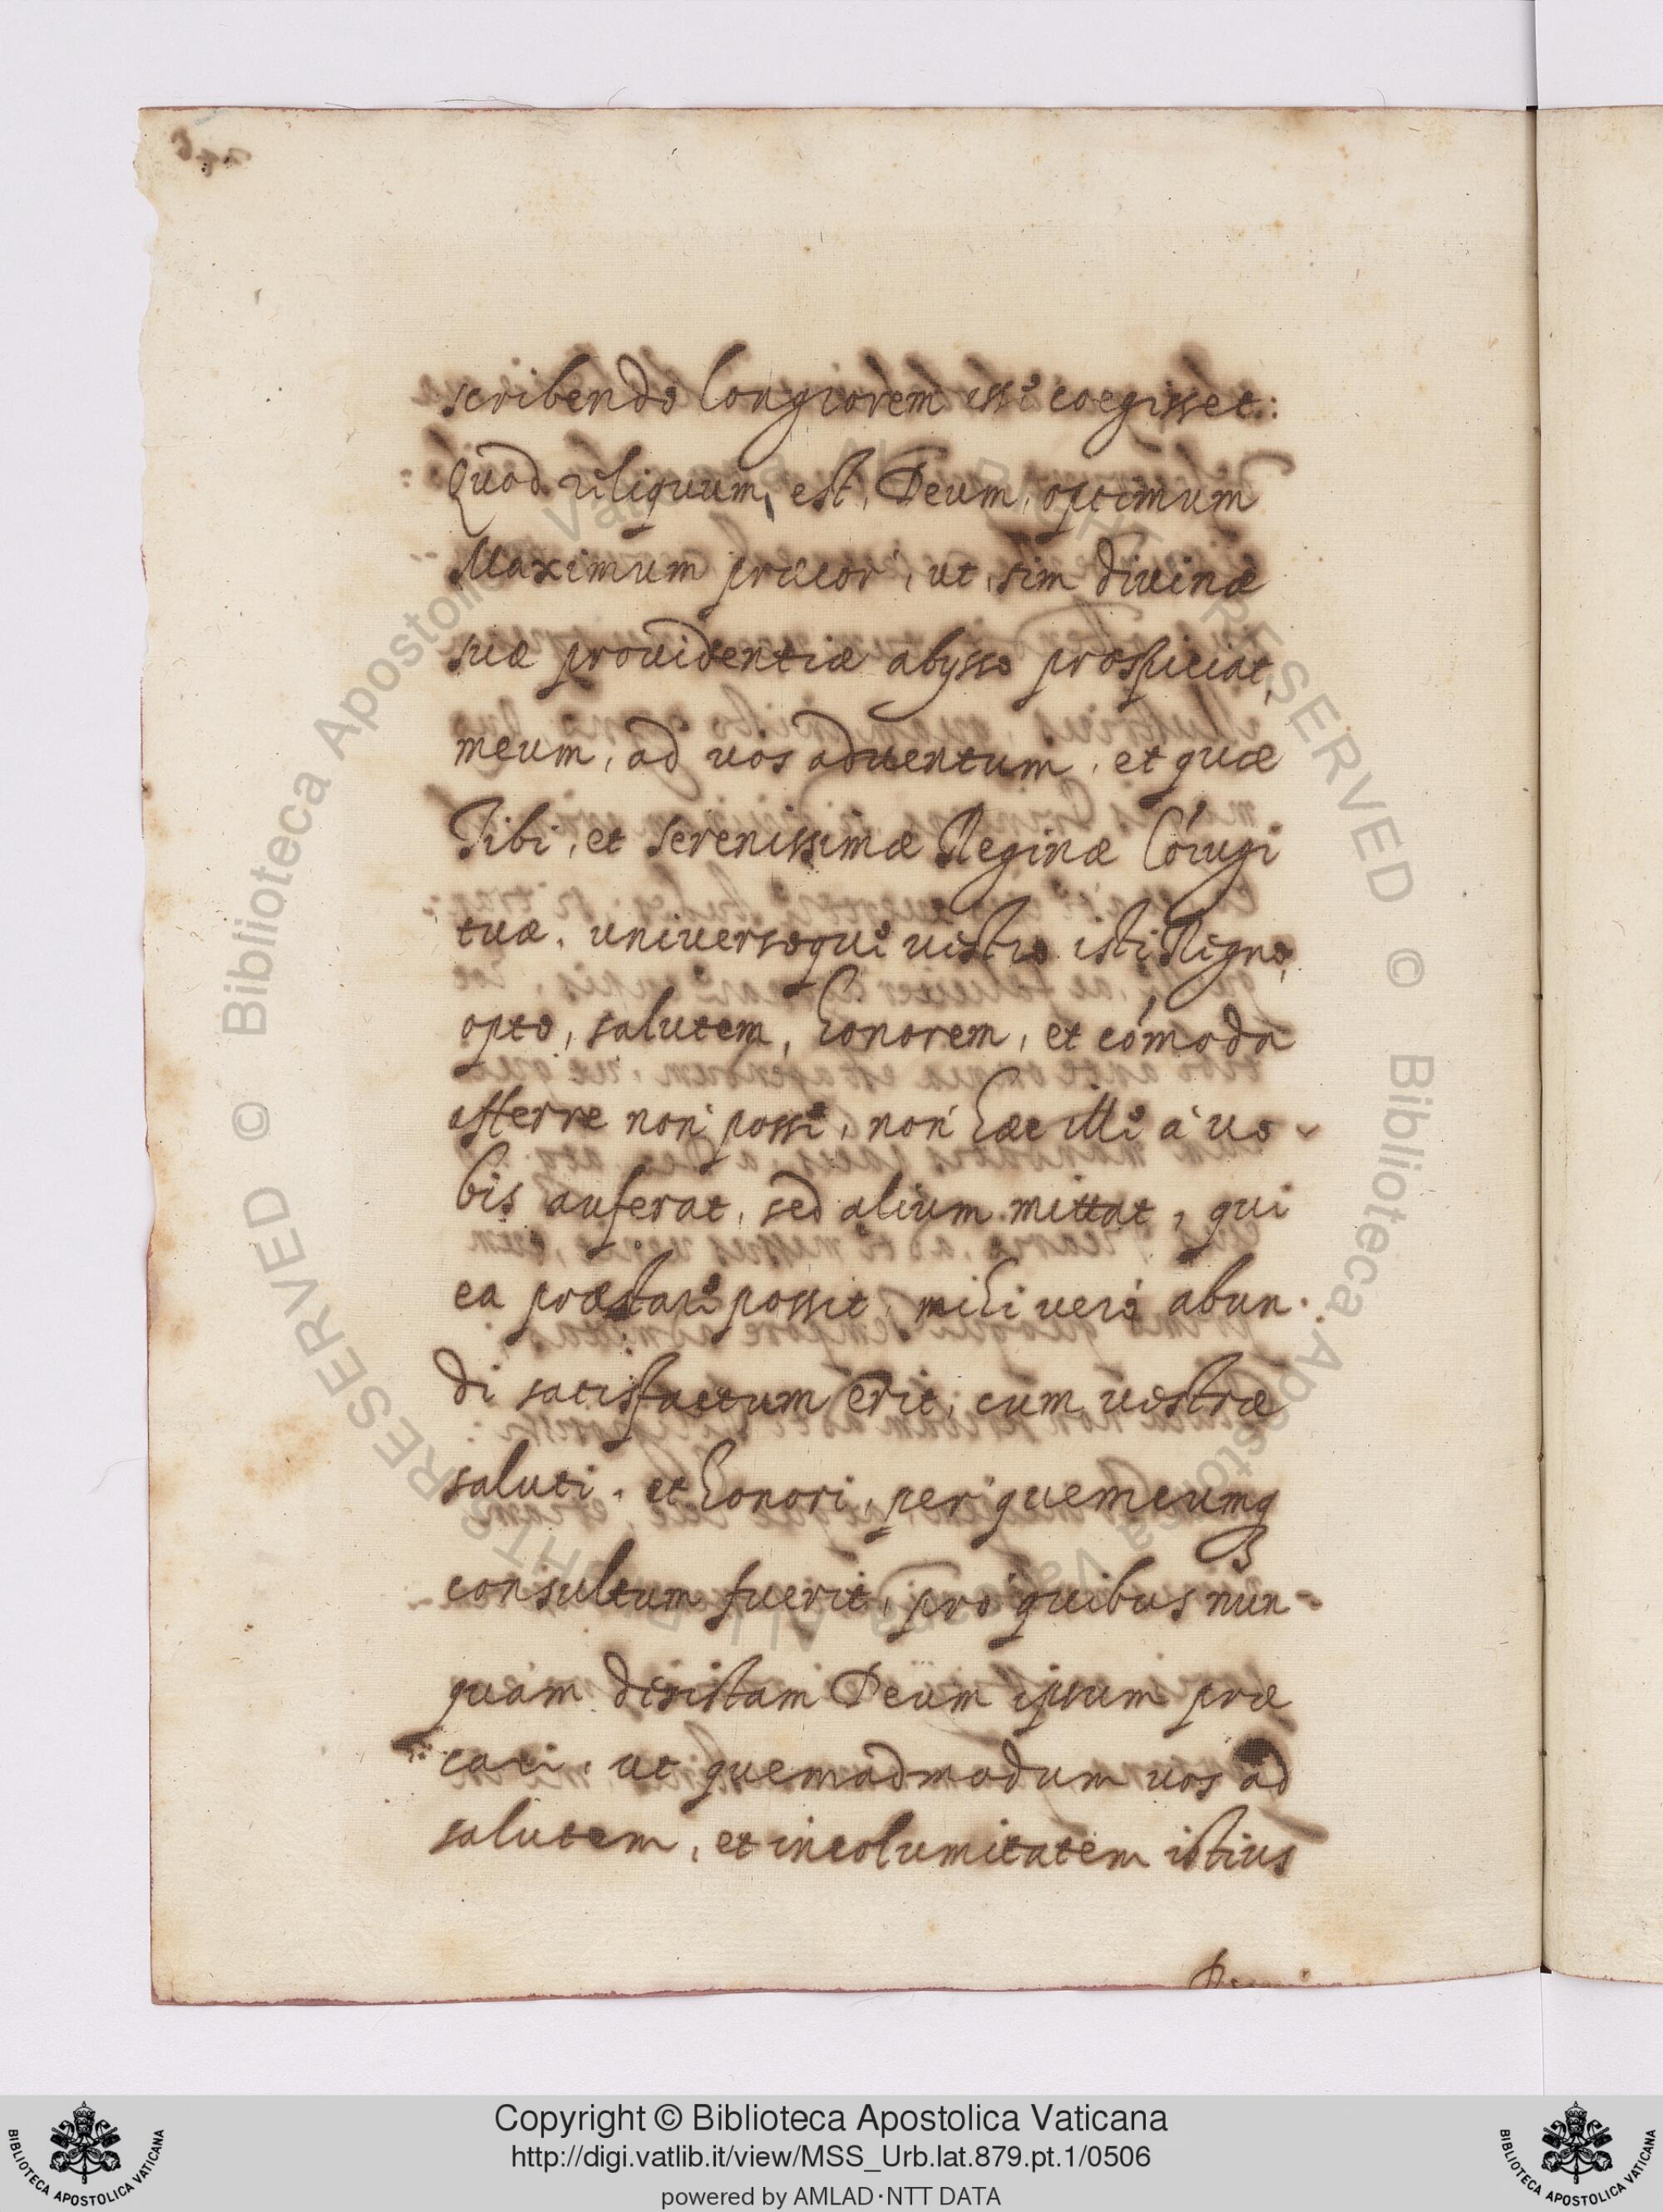 scribendo longiorem esse coegisset:
Quod reliquum est, Deum, optimum
Maximum præcor, ut, sim divinæ
suæ providentiæ abysso prospiciat,
meum, ad vos adventum, et quæ
Tibi, et serenissimæ Reginæ Cóiugi
tuæ, universoque vestro isti Regno,
opto, salutem, honorem, et cómoda
afferre non posse, non hæc ille à vo-
bis auferat, sed alium mittat, qui
ea præstare possit, mihi verò abun-
di satisfactum erit, cum vestræ
saluti, et honori, per quemcumq
consultum fuerit, pro quibus nun-
quàm desistam Deum ipsum præ
cari, ut quemadmodum vos ad
salutem, et incolumitatem istius
Biblioteca Apostolica Vaticana
ALL RIGHTS RESERVED ©
Copyright © Biblioteca Apostolica Vaticana
http://digi.vatlib.it/view/MSS_Urb.lat.879.pt.1/0506
powered by AMLAD·NTT DATA
BIBLIOTECA APOSTOLICA VATICANA
BIBLIOTECA APOSTOLICA VATICANA